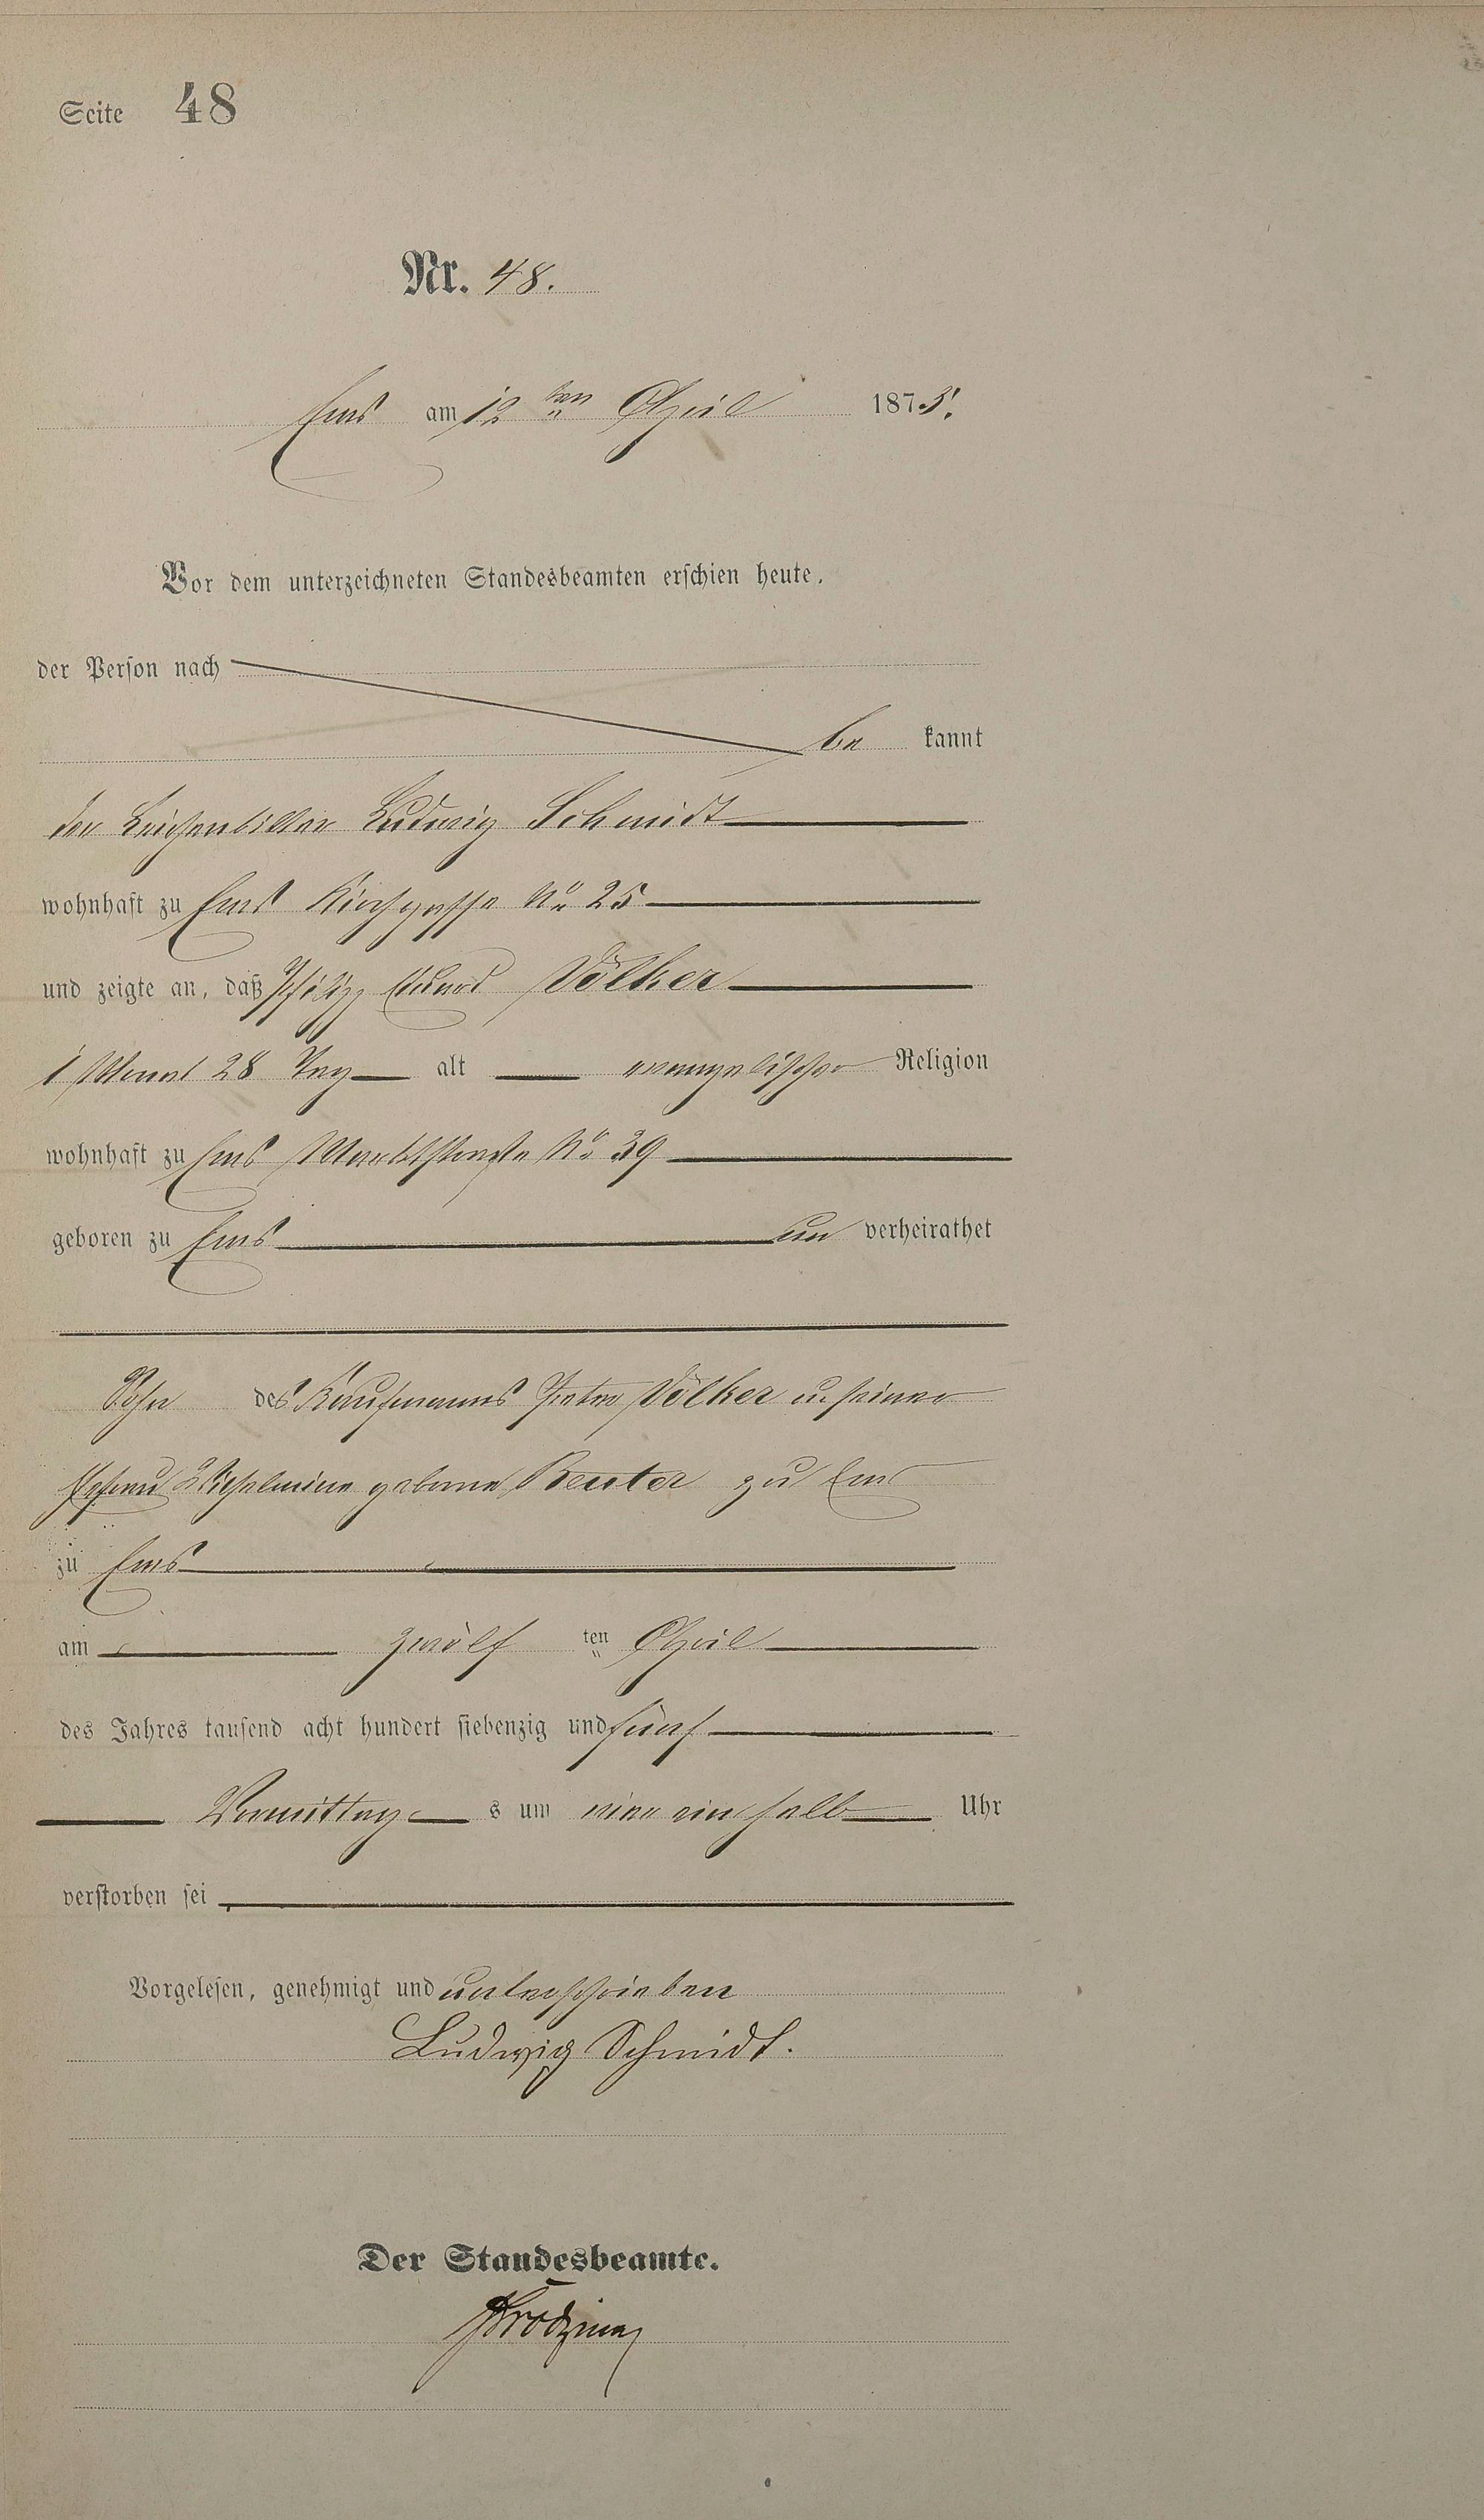 Seite 48
Nr. 48.
Ems am 12ten April 1875.
Vor dem unterzeichneten Standesbeamten erschien heute,
der Person nach
be kannt
der Leichenbitter Ludwig Schmidt
wohnhaft zu Ems Kirchgasse No 25
und zeigte an, daß Philipp Eduard Völker
1 Monat 28 Tag alt evangelischer Religion
wohnhaft zu Ems Marktstraße No 39
geboren zu Ems un verheirathet
Sohn des Kaufmanns Peter Völker u. seiner
Ehefrau Wilhelmine geborne Reuter zu Ems
zu Ems
am zwölf ten April
des Jahres tausend acht hundert siebenzig und fünf
Vormittag s um ein halb Uhr
verstorben sei
Vorgelesen, genehmigt und unterschrieben
Ludwig Schmidt.
Der Standesbeamte.